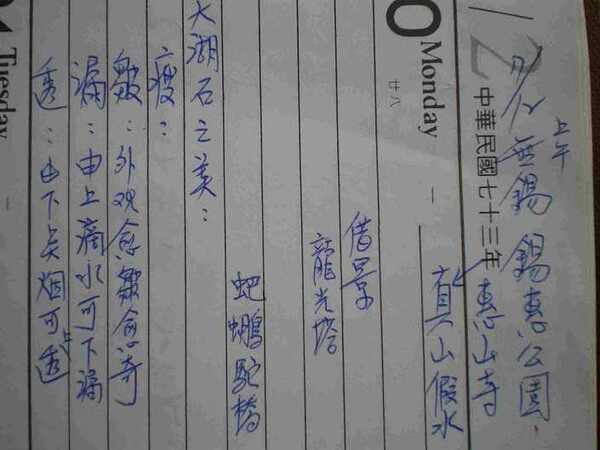 上午
無錫 錫惠公園.
12
中華民國七十三年
惠山寺
真山假水
Monday
廿八
借景
龍光塔
駝橋
大湖石之美：
瘦：
皺：外观愈皺愈奇
漏：由上滴水可下漏
透：由下点烟可上透
Tuesday